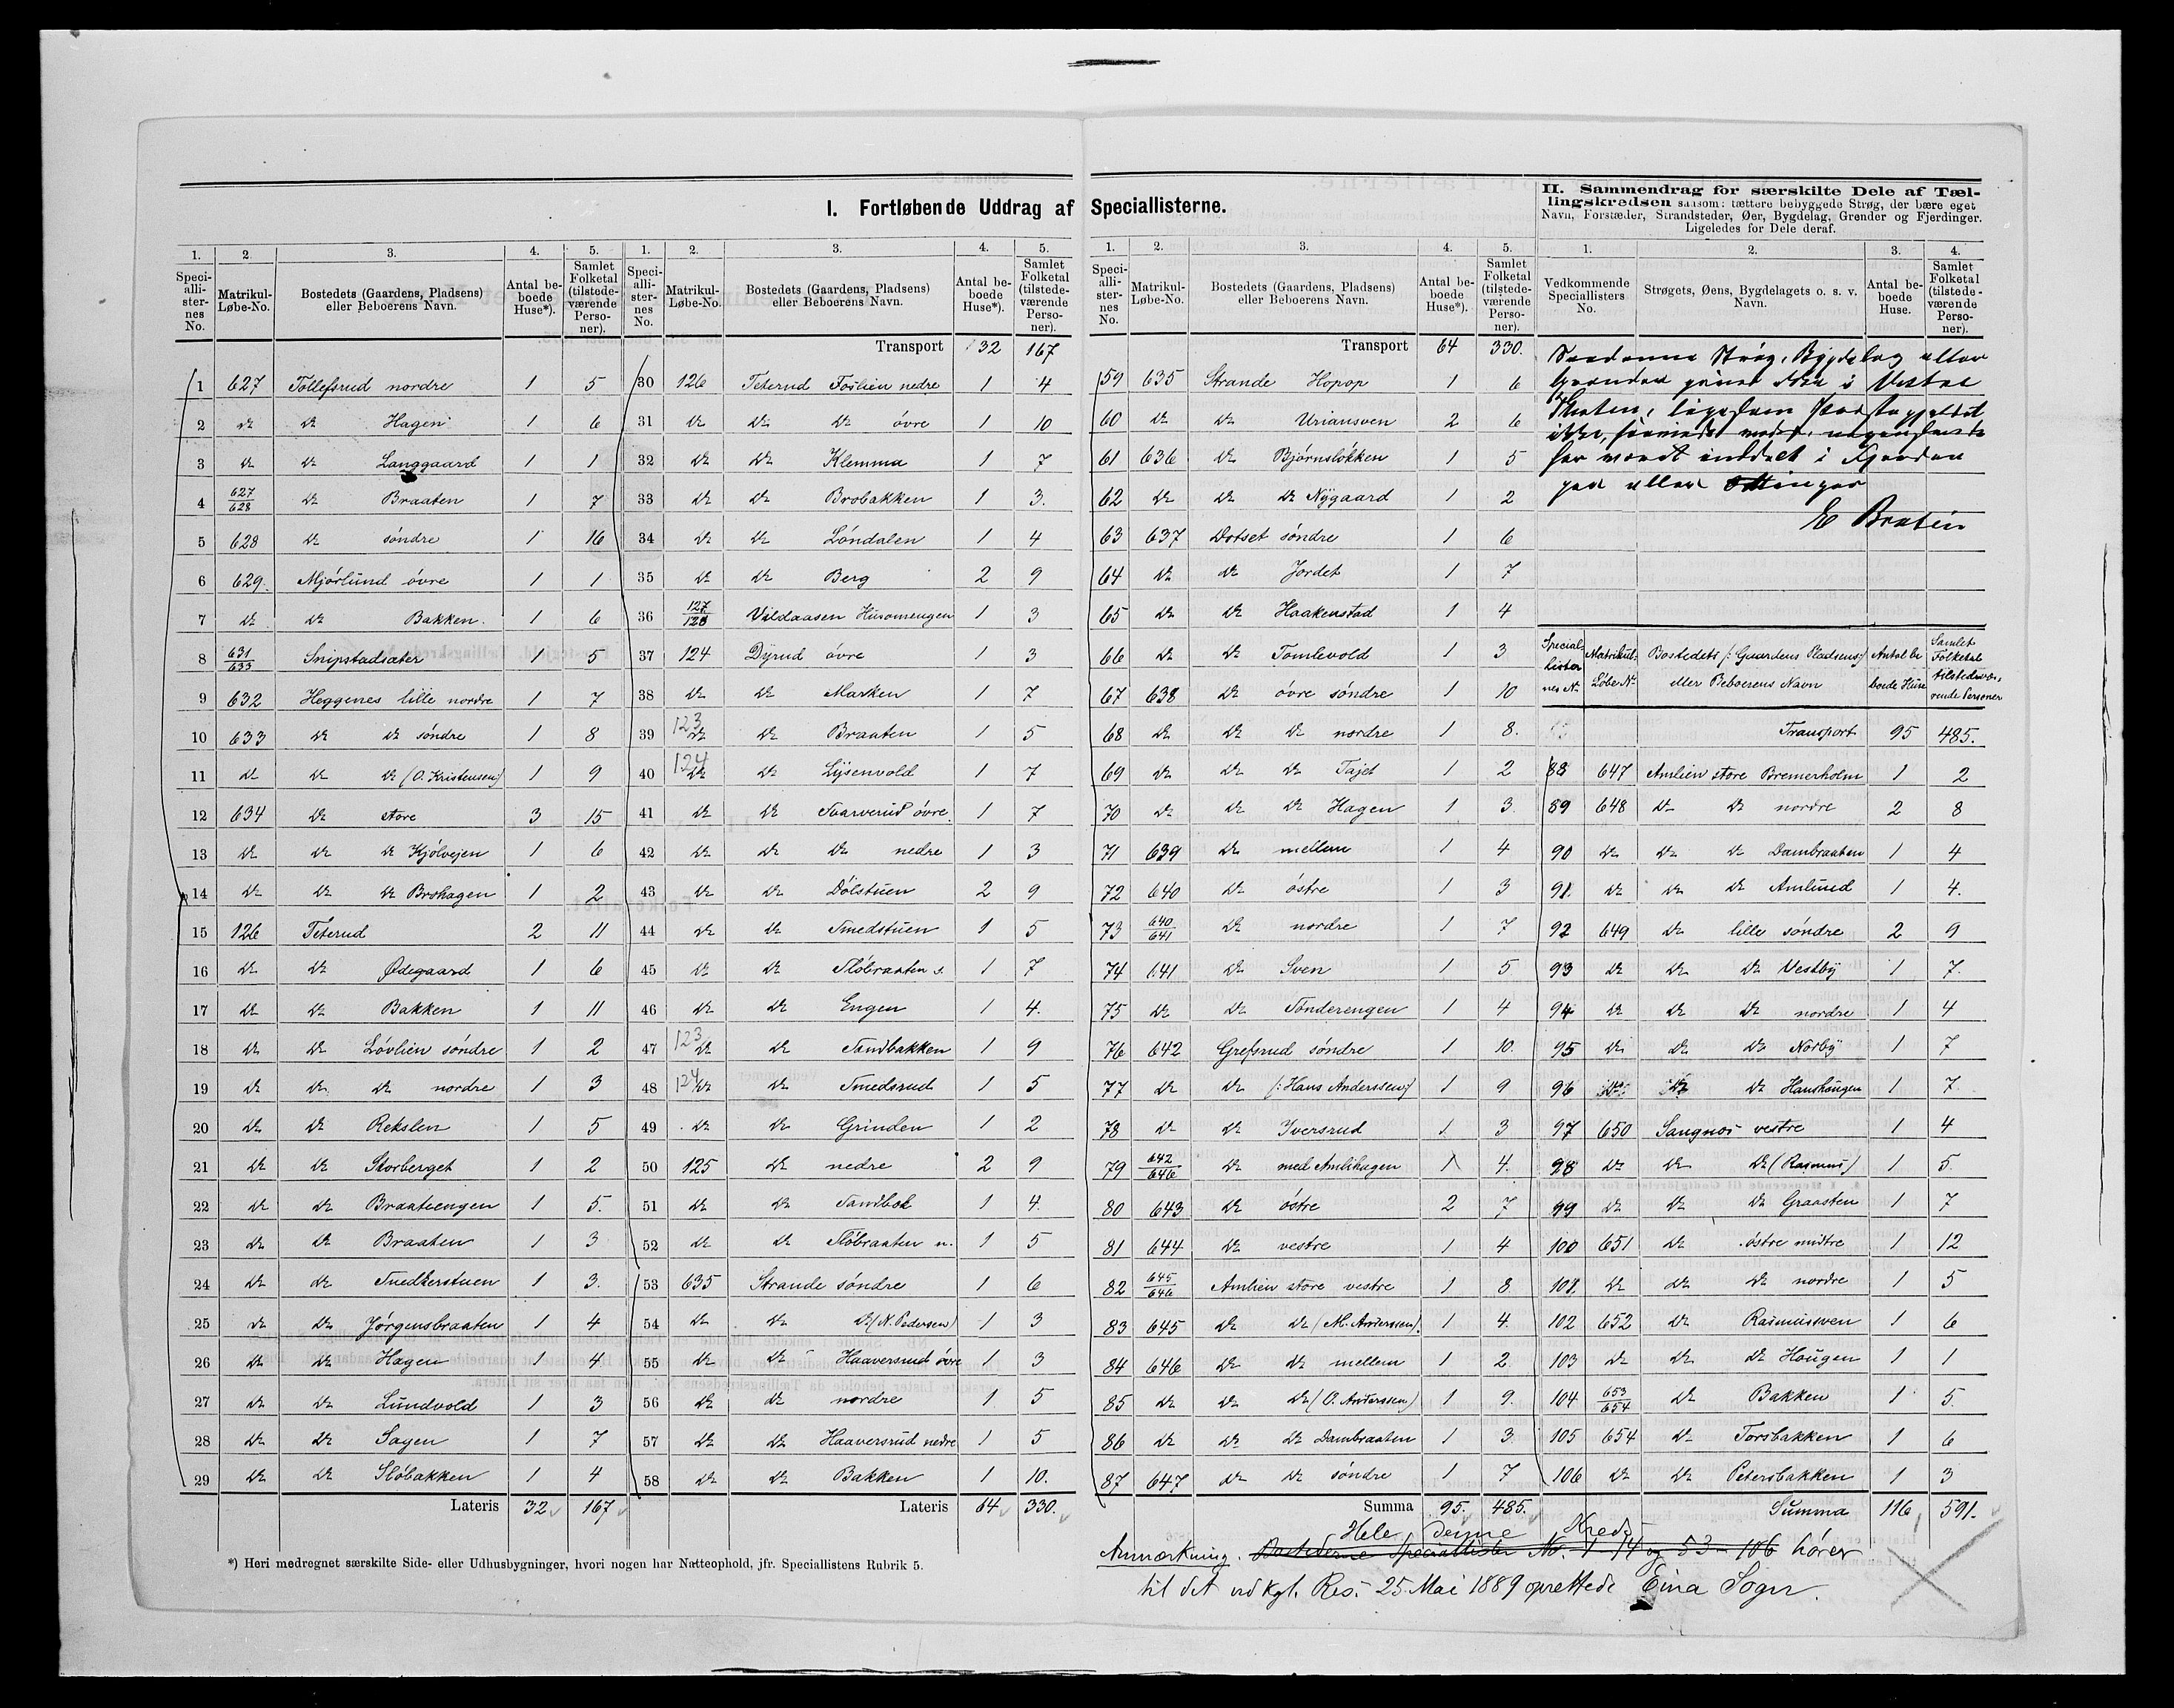 I. Fortløbende Uddrag af Speciallisterne.
1. 2. 3. 4. 5.
Speciallisternes No. Matrikul-Løbe-No. Bostedets (Gaardens, Pladsens) eller Beboerens Navn. Antal beboede Huse*). Samlet Folketal (tilstedeværende Personer).
1 627 Tollefsrud nordre 1 5
2 Do Do Hagen 1 6
3 Do Do Langgaard 1 1
4 627/628 Do Braaten 1 7
5 628 Do söndre 1 16
6 629. Mjörlund övre 1 1
7 Do Do Bakken. 1 6
8 631/633 Snipstadsæter 1 5
9 632 Heggenes lille nordre 1 7
10 633 Do Do söndre 1 8
11 Do Do Do (O. Kristensen) 1 9
12 634 Do store 3 15
13 Do Do Do Kjölvejen 1 6
14 Do Do Do Brohagen 1 2
15 126 Teterud 2 11
16 Do Do Ødegaard 1 6
17 Do Do Bakken 1 11
18 Do Do Lövlien söndre 1 2
19 Do Do Do nordre 1 3
20 Do Do Rekslen 1 5
21 Do Do Storberget 1 2
22 Do Do Braatengen 1 5.
23 Do Do Braaten 1 3
24 Do Do Snedkerstuen 1 3.
25 Do Do Jörgensbraaten 1 4
26 Do Do Hagen 1 4
27 Do Do Lundvold 1 3
28 Do Do Sagen 1 7
29 Do Do Slöbakken 1 4
Lateris 32 167
1. 2. 3. 4. 5.
Speciallisternes No. Matrikul-Løbe-No. Bostedets (Gaardens, Pladsens) eller Beboerens Navn. Antal beboede Huse*). Samlet Folketal (tilstedeværende Personer).
Transport 32 167
30 126 Teterud Foslien nedre 1 4
31 Do Do Do övre 1 10
32 Do Do Klemma 1 7
33 Do Do Brobakken 1 3.
34 Do Do Löndalen 1 4
35 Do Do Berg 2 9
36 127/128 Vildaasen Husomengen 1 3
37 124 Dyrud övre 1 3
38 Do Do Marken 1 7
39 123 Do Do Braaten 1 5
40 124 Do Do Lysenvold 1 7
41 Do Do Svarverud övre. 1 7
42 Do Do Do nedre 1 3
43 Do Do Dölstuen 2 9
44 Do Do Smedstuen 1 5
45 Do Do Slöbraaten s. 1 7
46 Do Do Engen 1 4.
47 123 Do Do Sandbakken 1 9
48 124 Do Do Smedsrud 1 5
49 Do Do Grinden 1 2
50 125 Do nedre 2 9
51 Do Do Sandbek 1 4.
52 Do Do Slöbraaten n. 1 5
53 635 Strande söndre 1 6
54 Do Do Do (N. Pedersen) 1 3
55 Do Do Haaversrud övre 1 3
56 Do Do nordre 1 5
57 Do Do Haaversrud nedre 1 5
58 Do Do Bakken 1 10.
Lateris 64 330.
*) Heri medregnet særskilte Side- eller Udhusbygninger, hvori nogen har Natteophold, jfr. Speciallistens Rubrik 5.
1. 2. 3. 4. 5.
Speciallisternes No. Matrikul-Løbe-No. Bostedets (Gaardens, Pladsens) eller Beboerens Navn. Antal beboede Huse*). Samlet Folketal (tilstedeværende Personer).
Transport 64 330.
59 635 Strande Hopop 1 6
60 Do Do Uriansven 2 6
61 636 Do Björnslökken 1 5
62 Do Do Do Nygaard 1 2
63 637 Dotset söndre 1 6
64 Do Do Jordet 1 7
65 Do Do Haakenstad 1 4
66 Do Do Tomlevold 1 3
67 638 Do övre söndre 1 10
68 Do Do Do nordre 1 8.
69 Do Do Do Tajet 1 2
70 Do Do Do Hagen 1 3.
71 639 Do mellem 1 4
72 640 Do östre 1 3
73 640/641 Do nordre 1 7
74 641 Do Sven 1 5
75 Do Do Sönderengen 1 4
76 642 Grefsrud söndre 1 10.
77 Do Do (: Hans Anderssen:) 1 9
78 Do Do Iversrud 1 3
79 642/646 Do med Amlihagen 1 4.
80 643 Do östre 2 7
81 644 Do vestre 1 4
82 645/646 Amlien store vestre 1 8.
83 645 Do Do (M. Anderssen). 1 4.
84 646 Do Do mellem 1 2.
85 Do Do Do (O. Anderssen) 1 9.
86 Do Do Do Dambraaten 1 3
87 647 Do Do söndre 1 7
Summa 95. 485.
II. Sammendrag for særskilte Dele af Tællingskredsen saasom: tættere bebyggede Strøg, der bære eget
Navn, Forstæder, Strandsteder, Øer, Bygdelag, Grender og Fjerdinger.
Ligeledes for Dele deraf.
1. 2. 3. 4.
Vedkommende Speciallisters No. Strøgets, Øens, Bygdelagets o. s. v. Navn. Antal beboede Huse. Samlet Folketal (tilstedeværende Personer).
Saadanne Strög, Bygdelag eller
Grender gives ikke i Vestre
Thoten, ligesom Præstegjeldet
ikke,
har været inddelt i Fjerdin
ger eller Ottinger
E Braten
Speciallisternes No Matrikul-Löbe No Bostedets (: Gaardens Pladsens:) eller Beboerens Navn Antal beboede Huse Samlet Folketal tilstedeværende Personer
Transport 95 485.
88 647 Amlien store Bremerholm 1 2
89 648 Do Do nordre 2 8
90 Do Do Do Dambraaten 1 4
91. Do Do Do Amlund 1 4.
92 649 Do lille söndre 2 9
93 Do Do Do Vestby 1 7.
94 Do Do Do nordre 1 4
95 Do Do Do Norby 1 7
96 Do Do Do Hanshaugen 1 7
97 650 Sangnes vestre 1 4
98 Do Do Do (Rasmus) 1 5.
99 Do Do Do Graasten 1 7
100 651 Do östre midtre 1 12
101. Do Do Do nordre 1 5
102 652 Do Rasmusven 1 6
103 Do Do Do Haugen 1 1
104 653/654 Do Bakken 1 5.
105 654 Do Torsbakken 1 6
106 Do Do Petersbakken 1 3
Summa 116 591.
Hele denne Kreds
Anmærkning. Bostederne Speciallister No. 1-14 og 53-106 hører
til det ved kgl. Res. 25 Mai 1889 oprettede Eina Sogn.